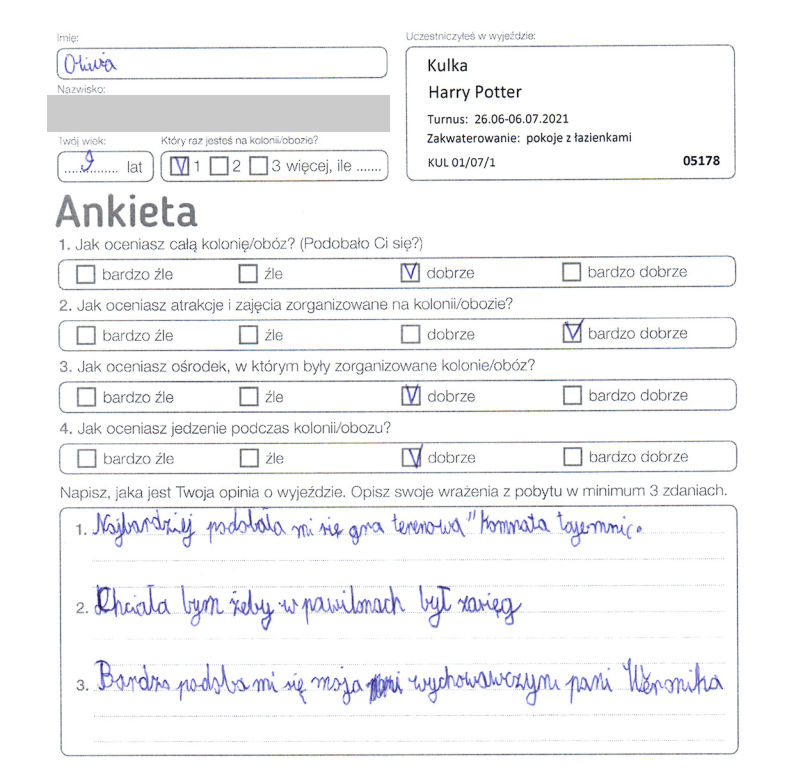 Imię:
Oliwia
Nazwisko:
Twój wiek:
9 lat
Który raz jesteś na kolonii/obozie?
1 2 3 więcej, ile .......
Uczestniczyłeś w wyjeździe:
Kulka
Harry Potter
Turnus: 26.06-06.07.2021
Zakwaterowanie: pokoje z łazienkami
KUL 01/07/1 05178
Ankieta
1. Jak oceniasz całą kolonię/obóz? (Podobało Ci się?)
bardzo źle źle dobrze bardzo dobrze
2. Jak oceniasz atrakcje i zajęcia zorganizowane na kolonii/obozie?
bardzo źle źle dobrze bardzo dobrze
3. Jak oceniasz ośrodek, w którym były zorganizowane kolonie/obóz?
bardzo źle źle dobrze bardzo dobrze
4. Jak oceniasz jedzenie podczas kolonii/obozu?
bardzo źle źle dobrze bardzo dobrze
Napisz, jaka jest Twoja opinia o wyjeździe. Opisz swoje wrażenia z pobytu w minimum 3 zdaniach.
1. Najbardziej podobała mi się gra terenowa "Komnata tajemnic.
2. Chciała bym żeby w pawilonach był zasięg
3. Bardzo podoba mi się moja wychowawczyni pani Weronika